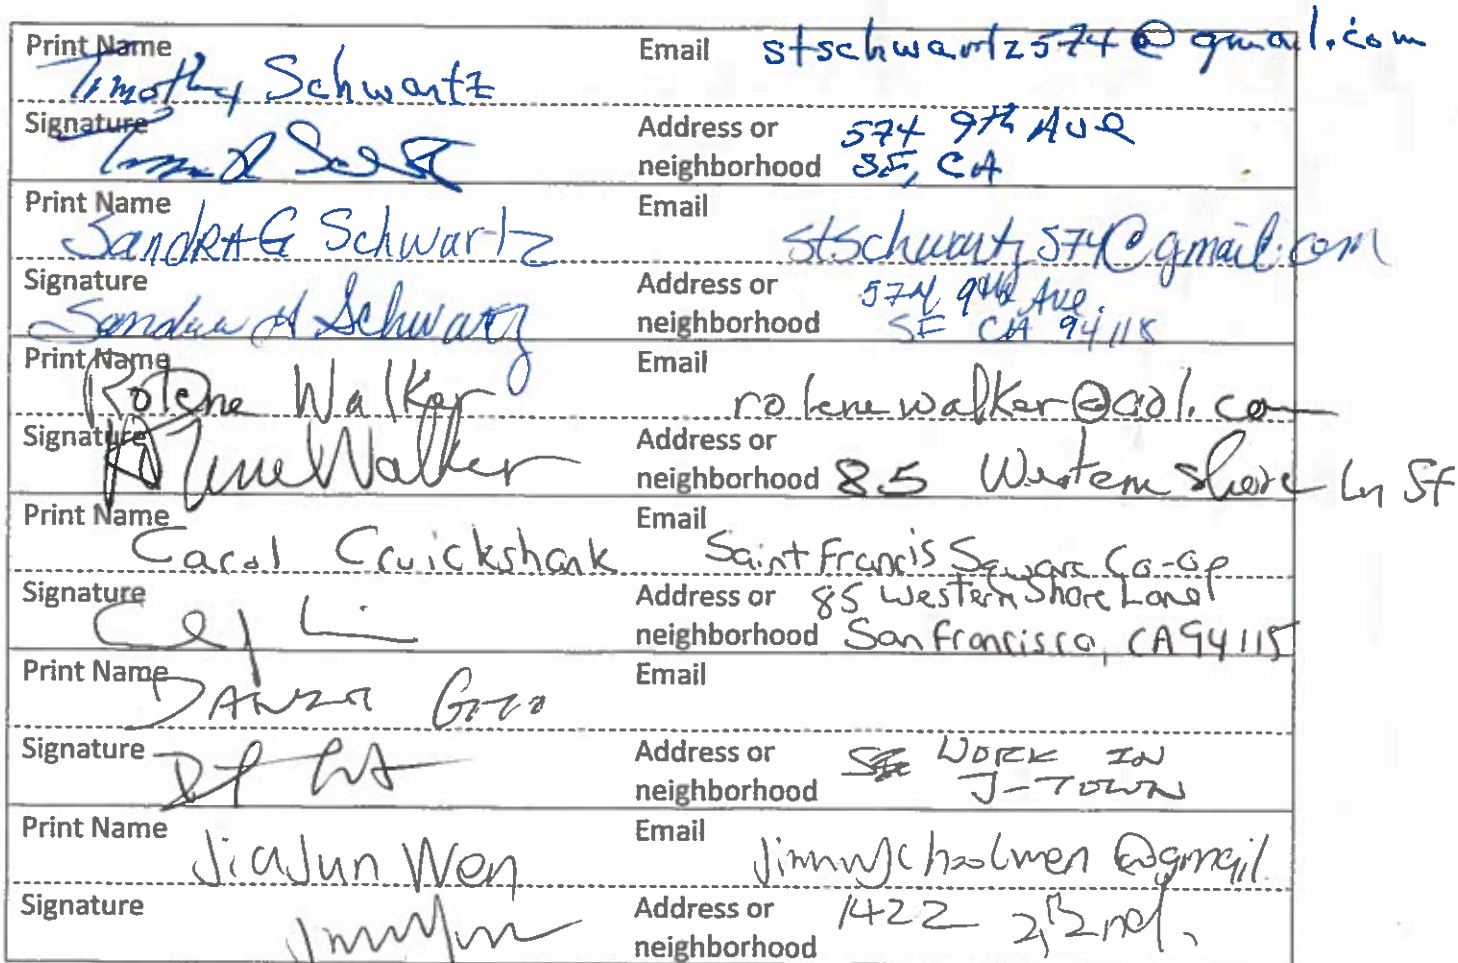 Print Name Timothy Schwartz Email stschwartz574@gmail.com
Signature Address or neighborhood 574 9th Ave
SF, CA
Print Name Sandra G Schwartz Email stschwartz574@gmail.com
Signature Sandra Schwartz Address or neighborhood 574 9th Ave.
SF CA 94118
Print Name Rolene Walker Email rolenewalker@aol.com
Signature Rolene Walker Address or neighborhood 85 Western Shore Ln SF
Print Name Carol Cruickshank Email Saint Francis Square Co-op
Signature Address or neighborhood 85 Western Shore Lane
San Francisco, CA 94115
Print Name Email
Signature Address or neighborhood WORK IN
J-TOWN
Print Name JiaJun Wen Email
Signature Address or neighborhood 1422